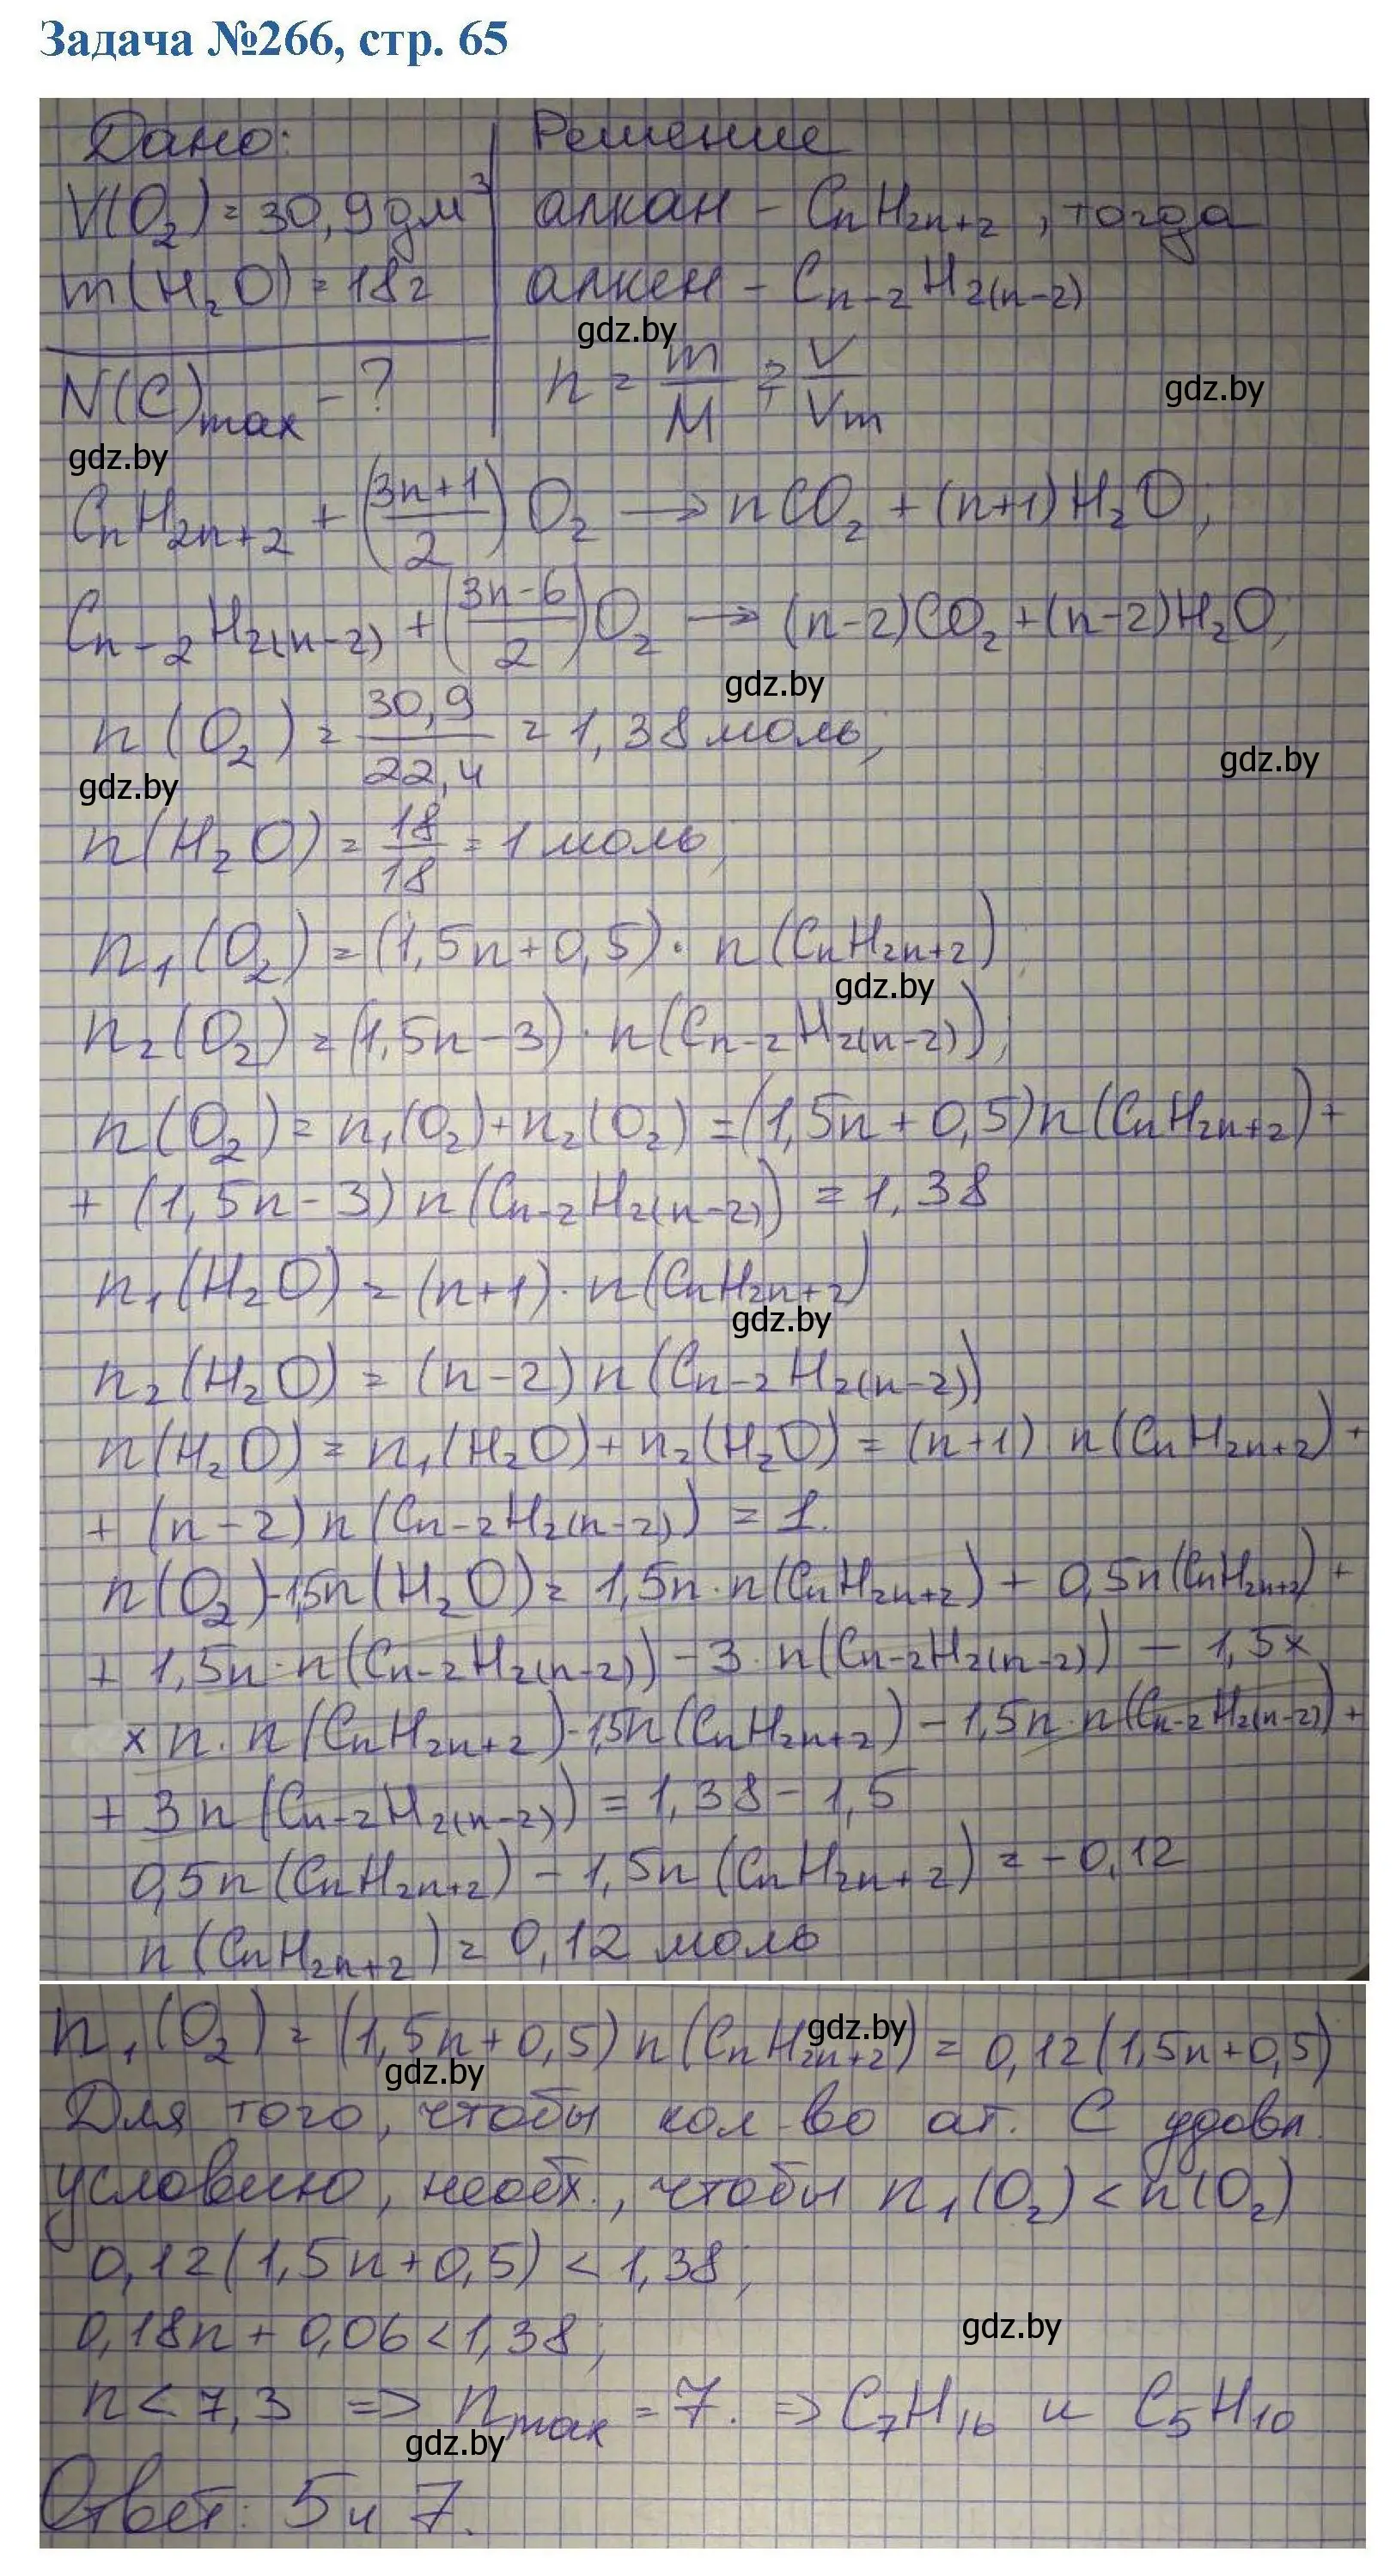 Задача №266, стр. 65
Дано: Решение
V(O₂) = 30,9 дм³ алкан – CnH2n+2, тогда
m(H₂O) = 18г алкен – Cn-2H2(n-2)
gdz.by
N(C)max – ? n = m/M = V/Vm
gdz.by
gdz.by
CnH2n+2 + ((3n+1)/2) O₂ → nCO₂ + (n+1)H₂O;
Cn-2H2(n-2) + ((3n-6)/2) O₂ → (n-2)CO₂ + (n-2)H₂O;
gdz.by
n(O₂) = 30,9/22,4 = 1,38 моль;
gdz.by
gdz.by
n(H₂O) = 18/18 = 1 моль;
n₁(O₂) = (1,5n+0,5) · n(CnH2n+2);
gdz.by
n₂(O₂) = (1,5n-3) · n(Cn-2H2(n-2));
n(O₂) = n₁(O₂) + n₂(O₂) = (1,5n+0,5)n(CnH2n+2) +
+ (1,5n-3) n(Cn-2H2(n-2)) = 1,38
n₁(H₂O) = (n+1) · n(CnH2n+2)
gdz.by
n₂(H₂O) = (n-2) n(Cn-2H2(n-2))
n(H₂O) = n₁(H₂O) + n₂(H₂O) = (n+1) n(CnH2n+2) +
+ (n-2) n(Cn-2H2(n-2)) = 1.
n(O₂) - 1,5n(H₂O) = 1,5n · n(CnH2n+2) + 0,5n(CnH2n+2) +
+ 1,5n · n(Cn-2H2(n-2)) - 3 · n(Cn-2H2(n-2)) - 1,5 x
x n · n(CnH2n+2) - 1,5n(CnH2n+2) - 1,5n · n(Cn-2H2(n-2)) +
+ 3n(Cn-2H2(n-2)) = 1,38 - 1,5
0,5n(CnH2n+2) - 1,5n(CnH2n+2) = -0,12
n(CnH2n+2) = 0,12 моль
n₁(O₂) = (1,5n+0,5) n(CnH2n+2) = 0,12(1,5n+0,5)
gdz.by
gdz.by
Для того, чтобы кол-во ат. C удовл.
условию, необх., чтобы n₁(O₂) < n(O₂)
0,12(1,5n+0,5) < 1,38;
0,18n + 0,06 < 1,38;
gdz.by
n < 7,3 => nmax = 7. => C₇H₁₆ и C₅H₁₀
gdz.by
Ответ: 5 и 7.